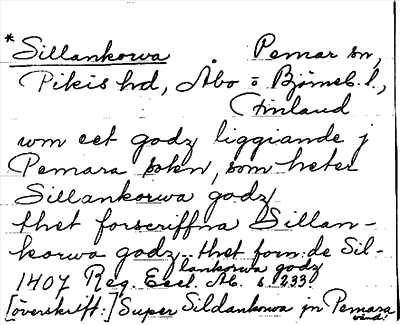 *Sillankorwa Pemar sn,
Pikis hd, Åbo o Björneb. l.,
Finland
um eet godz liggiande j
Pemara sokn, som heter
Sillankorwa godz
thet forscriffna Sillan-
korwa godz. thet forn:de Sil-
lankorwa godz
1407 Reg. Eccl. Ab. s 233
[överskrift:] Super Sildankowa jn Pemara
vänd!